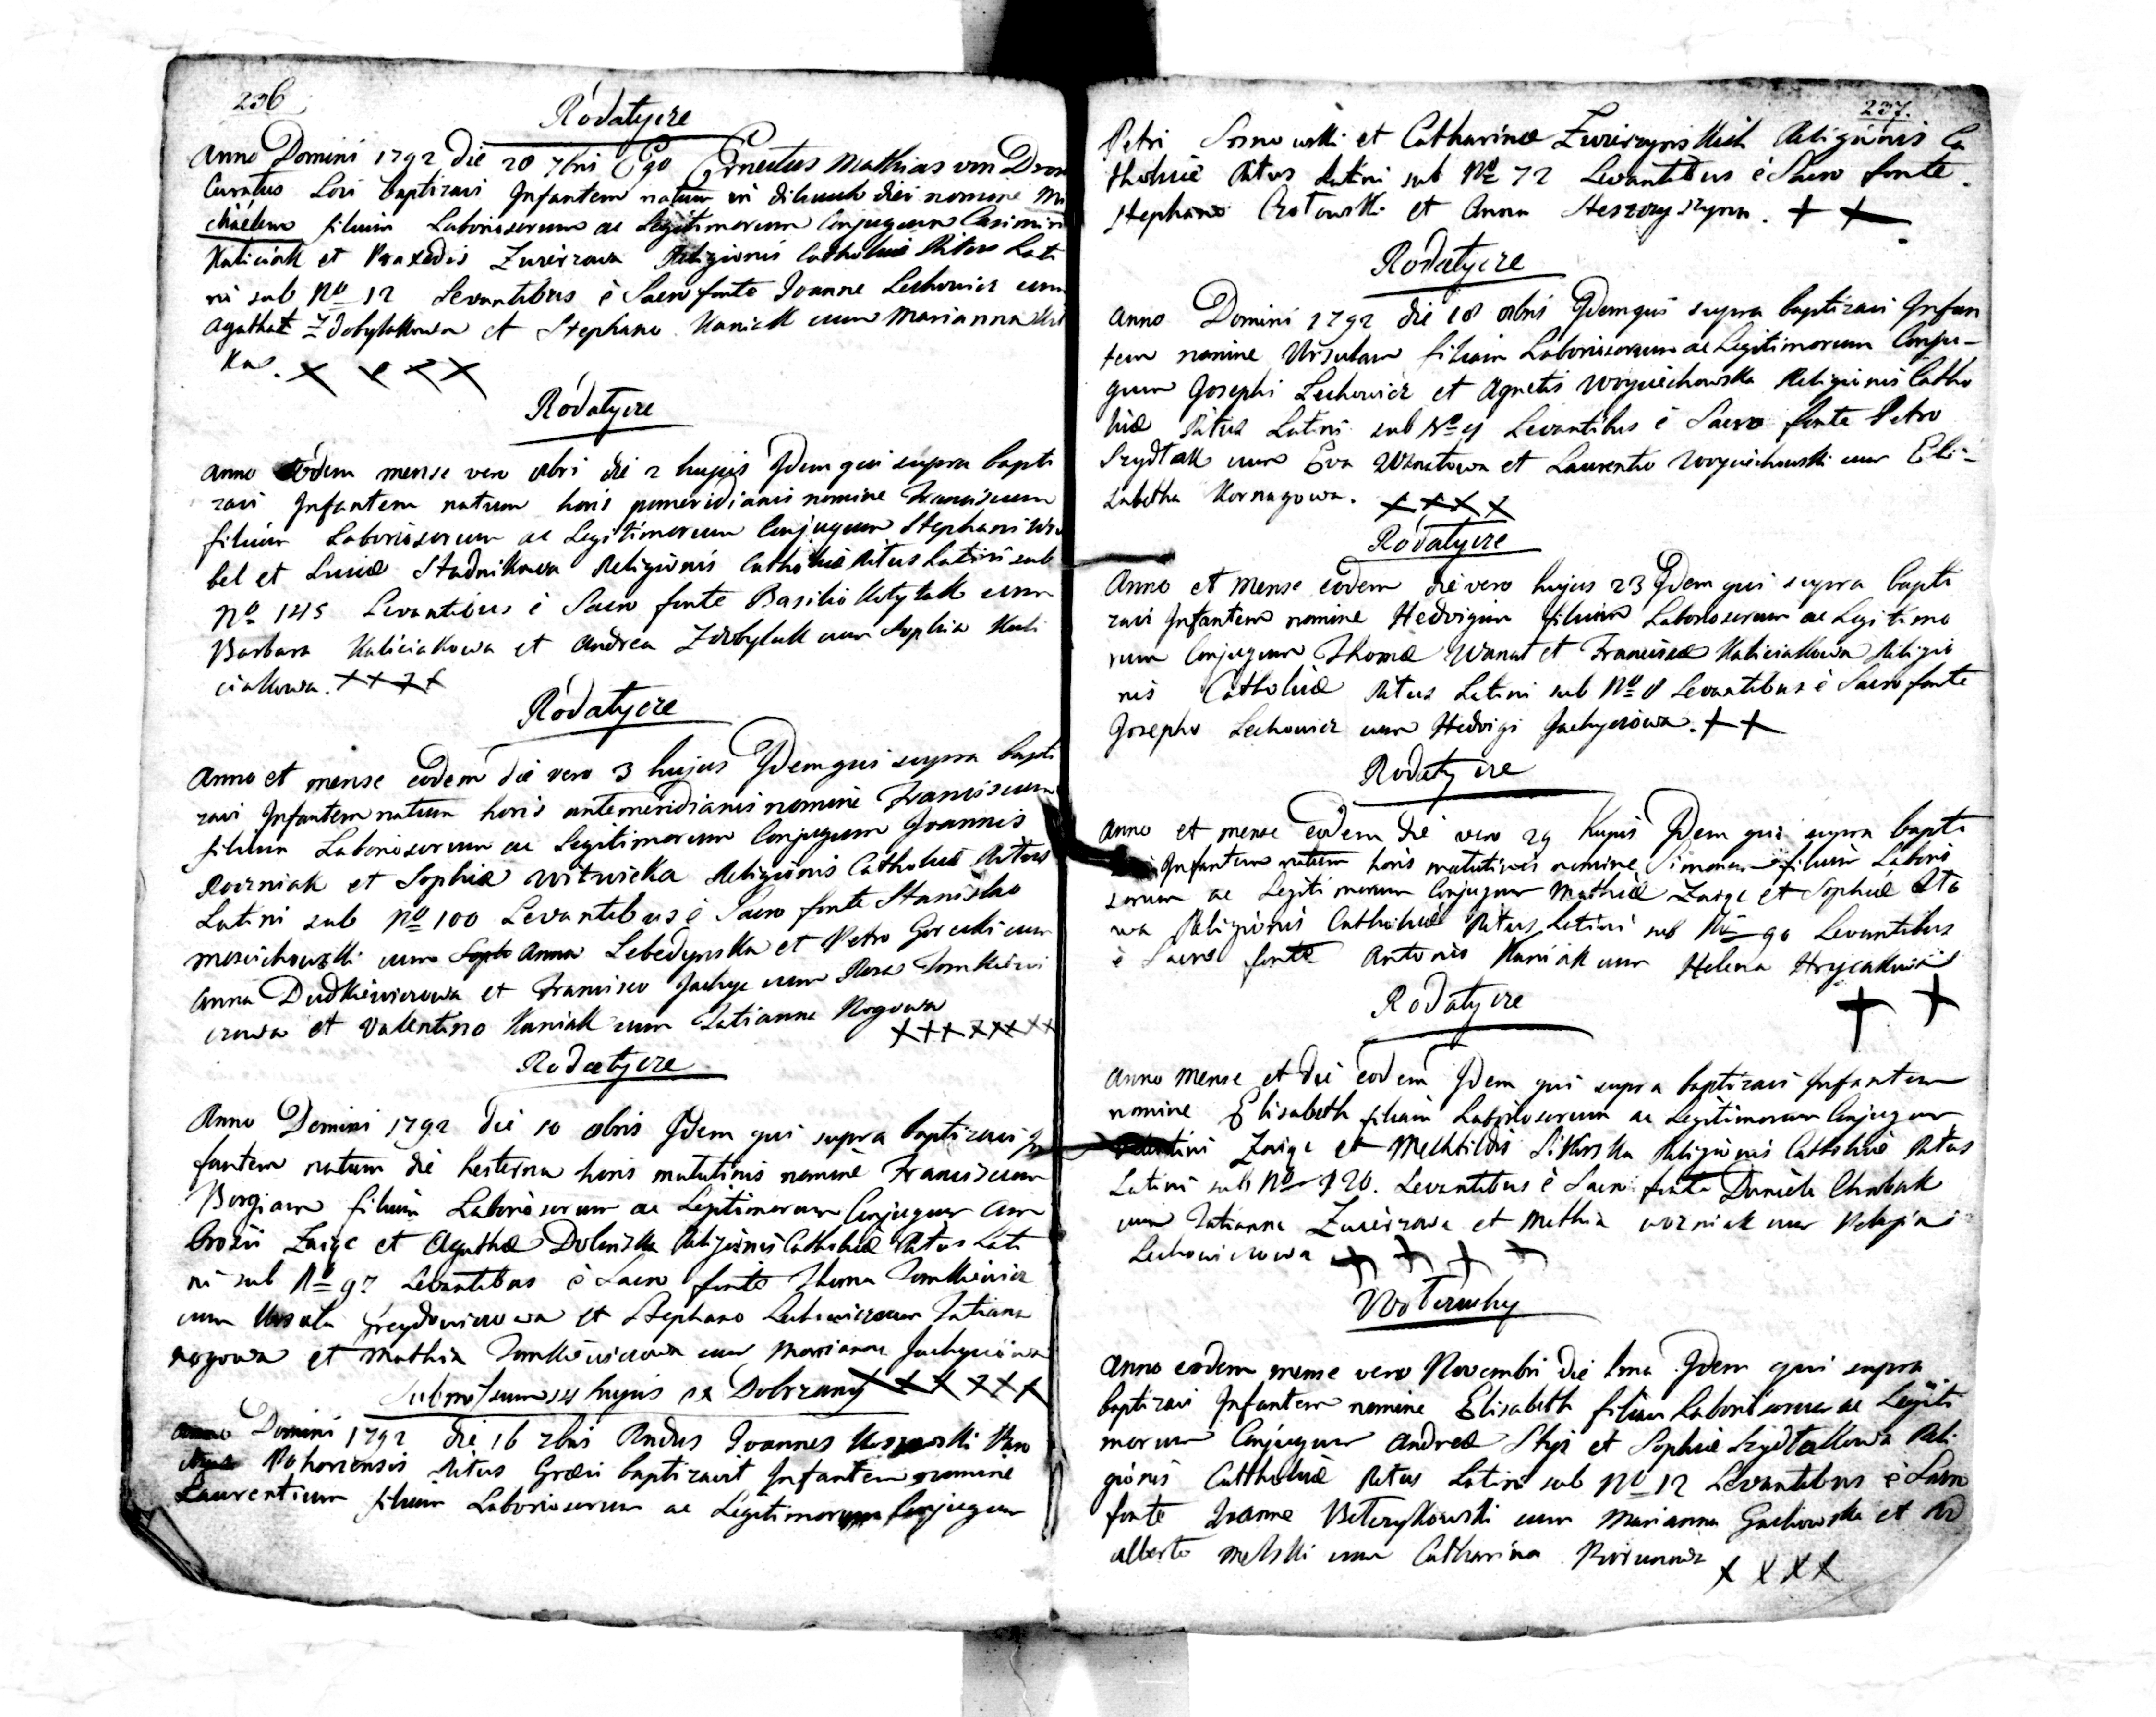 236
Rodatycze
Anno Domini 1792 die 28 7bris Ego Ernestus Mathias von Dross
Curatus Loci baptizavi Infantem natum in diluculo diei nomine Mi
chaelem filium Laboriosorum ac Legitimorum Conjugum Casimiri
Kaliciak et Praxedis Zwierzowa Religionis Catholicae Ritus Lati
ni sub No 12 Levantibus è Sacro fonte Joanne Lechowicz cum
Agatha Zdobylakowa et Stephano Kaniak cum Marianna
ka.
Ródatycze
Anno eodem mense vero 8bri die 2 hujus Idem qui supra bapti
zavi Infantem natum horis pomeridianis nomine Franciscum
filium Laboriosorum ac Legitimorum Conjugum Stephani Wru
bel et Luciae Stadnikowa Religionis Catholicae Ritus Latini sub
No 145 Levantibus è Sacro fonte Basilio Kotylak cum
Barbara Kaliciakowa et Andrea Zdobylak cum Sophia Kali
ciakowa.
Ródatycze
Anno et mense eodem die vero 3 hujus Idem qui supra bapti
zavi Infantem natum horis antemeridianis nomine Franciscum
filium Laboriosorum ac Legitimorum Conjugum Joannis
Wozniak et Sophiae Witwicka Religionis Catholicae Ritus
Latini sub No 100 Levantibus è Sacro fonte Stanislao
cum Anna Lebedynska et Petro Gorecki cum
Anna Dudkiewiczowa et Francisco Jachyc cum Rosa Tomkiewi
czowa et Valentino Kaniak cum Tatianna Rogowa
Rodatycze
Anno Domini 1792 die 10 8bris Idem qui supra baptizavi In
fantem natum die hesterna horis matutinis nomine Franciscum
Borgiam filium Laboriosorum ac Legitimorum Conjugum Am
brosii Zaige et Agathae Dolinska Religionis Catholicae Ritus Lati
ni sub No 97 Levantibus è Sacro fonte Thoma Tomkiewicz
cum Ursula et Stephano Lechowicz cum Tatiana
Rogowa et Mathia Tomkiewiczowa cum Marianna Jachyciowa
hujus ex Dobrzany
Anno Domini 1792 die 16 7bris Rndus Joannes Paro
chus Pohorcensis Ritus Graeci baptizavit Infantem nomine
Laurentium filium Laboriosorum ac Legitimorum Conjugum
237.
Petri Sosnowski et Catharinae Zwierzynskich Religionis Ca
tholicae Ritus Latini sub No 72 Levantibus è Sacro fonte
Stephano et Anna
Rodatycze
Anno Domini 1792 die 18 8bris Idem qui supra baptizavi Infan
tem nomine Ursulam filiam Laboriosorum ac Legitimorum Conju-
gum Josephi Lechowicz et Agnetis Woyciechowska Religionis Catho
licae Ritus Latini sub No 4 Levantibus è Sacro fonte Petro
Szydłak cum Eva Wanatowa et Laurentio Woyciechowski cum Eli-
sabetha Kornagowa.
Rodatycze
Anno et Mense eodem die vero hujus 23 Idem qui supra bapti
zavi Infantem nomine Hedvigim filiam Laboriosorum ac Legitimo
rum Conjugum Thomae Wanat et Franciscae Kaliciakowa Religio
nis Catholicae Ritus Latini sub No 8 Levantibus è Sacro fonte
Josepho Lechowicz cum Hedvigi Jachyciowa.
Rodatycze
Anno et mense eodem die vero 29 hujus Idem qui supra bapti
zavi Infantem natum horis matutinis nomine Simonem filium Laborio
sorum ac Legitimorum Conjugum Mathiae Zaige et Sophiae Sto
wa Religionis Catholicae Ritus Latini sub No 90 Levantibus
è Sacro fonte Antonio Kaniak cum Helena Hrycakowa
Rodatycze
Anno Mense et die eodem Idem qui supra baptizavi Infantem
nomine Elisabeth filiam Laboriosorum ac Legitimorum Conjugum
Valentini Zaige et Mechtildis Sikorska Religionis Catholicae Ritus
Latini sub No 120. Levantibus è Sacro fonte Daniele Chrobak
cum Tatianna Zwierzowa et Mathia Wozniak cum Pelagia
Lechowiczowa
Wołczuchy
Anno eodem mense vero Novembri die 1ma Idem qui supra
baptizavi Infantem nomine Elisabeth filiam Laboriosorum ac Legiti
morum Conjugum Andreae Styś et Sophiae Szydłakowa Reli
gionis Catholicae Ritus Latini sub No 12 Levantibus è Sacro
fonte Joanne Weterykowski cum Marianna Gachowska et Ad
alberto Melski cum Catharina